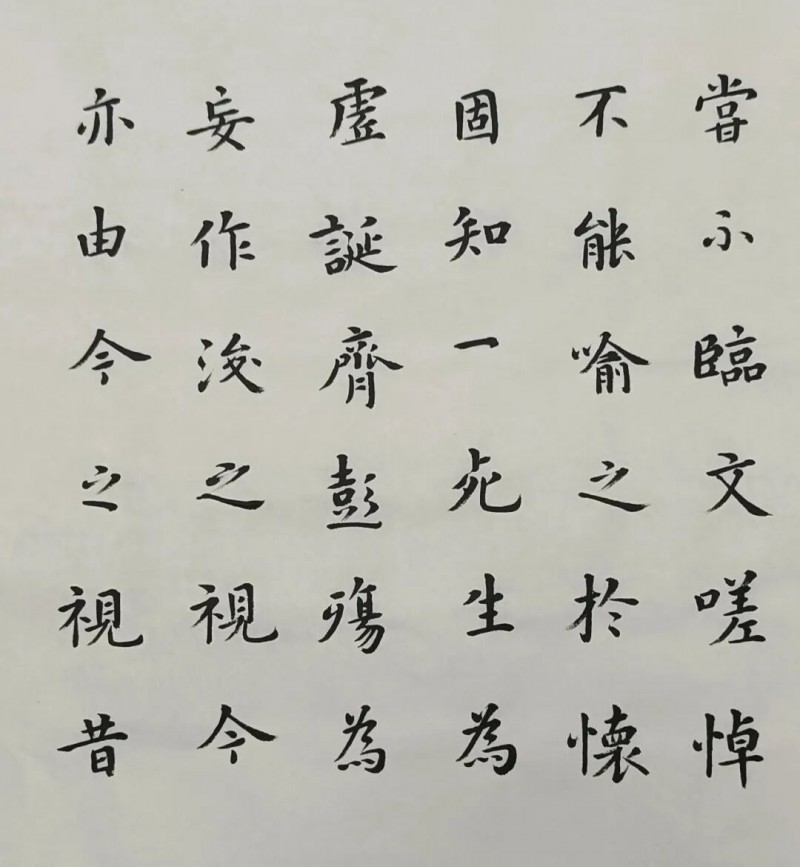 嘗不臨文嗟悼
不能喻之於懷
固知一死生為
虛誕齊彭殤為
妄作後之視今
亦由今之視昔